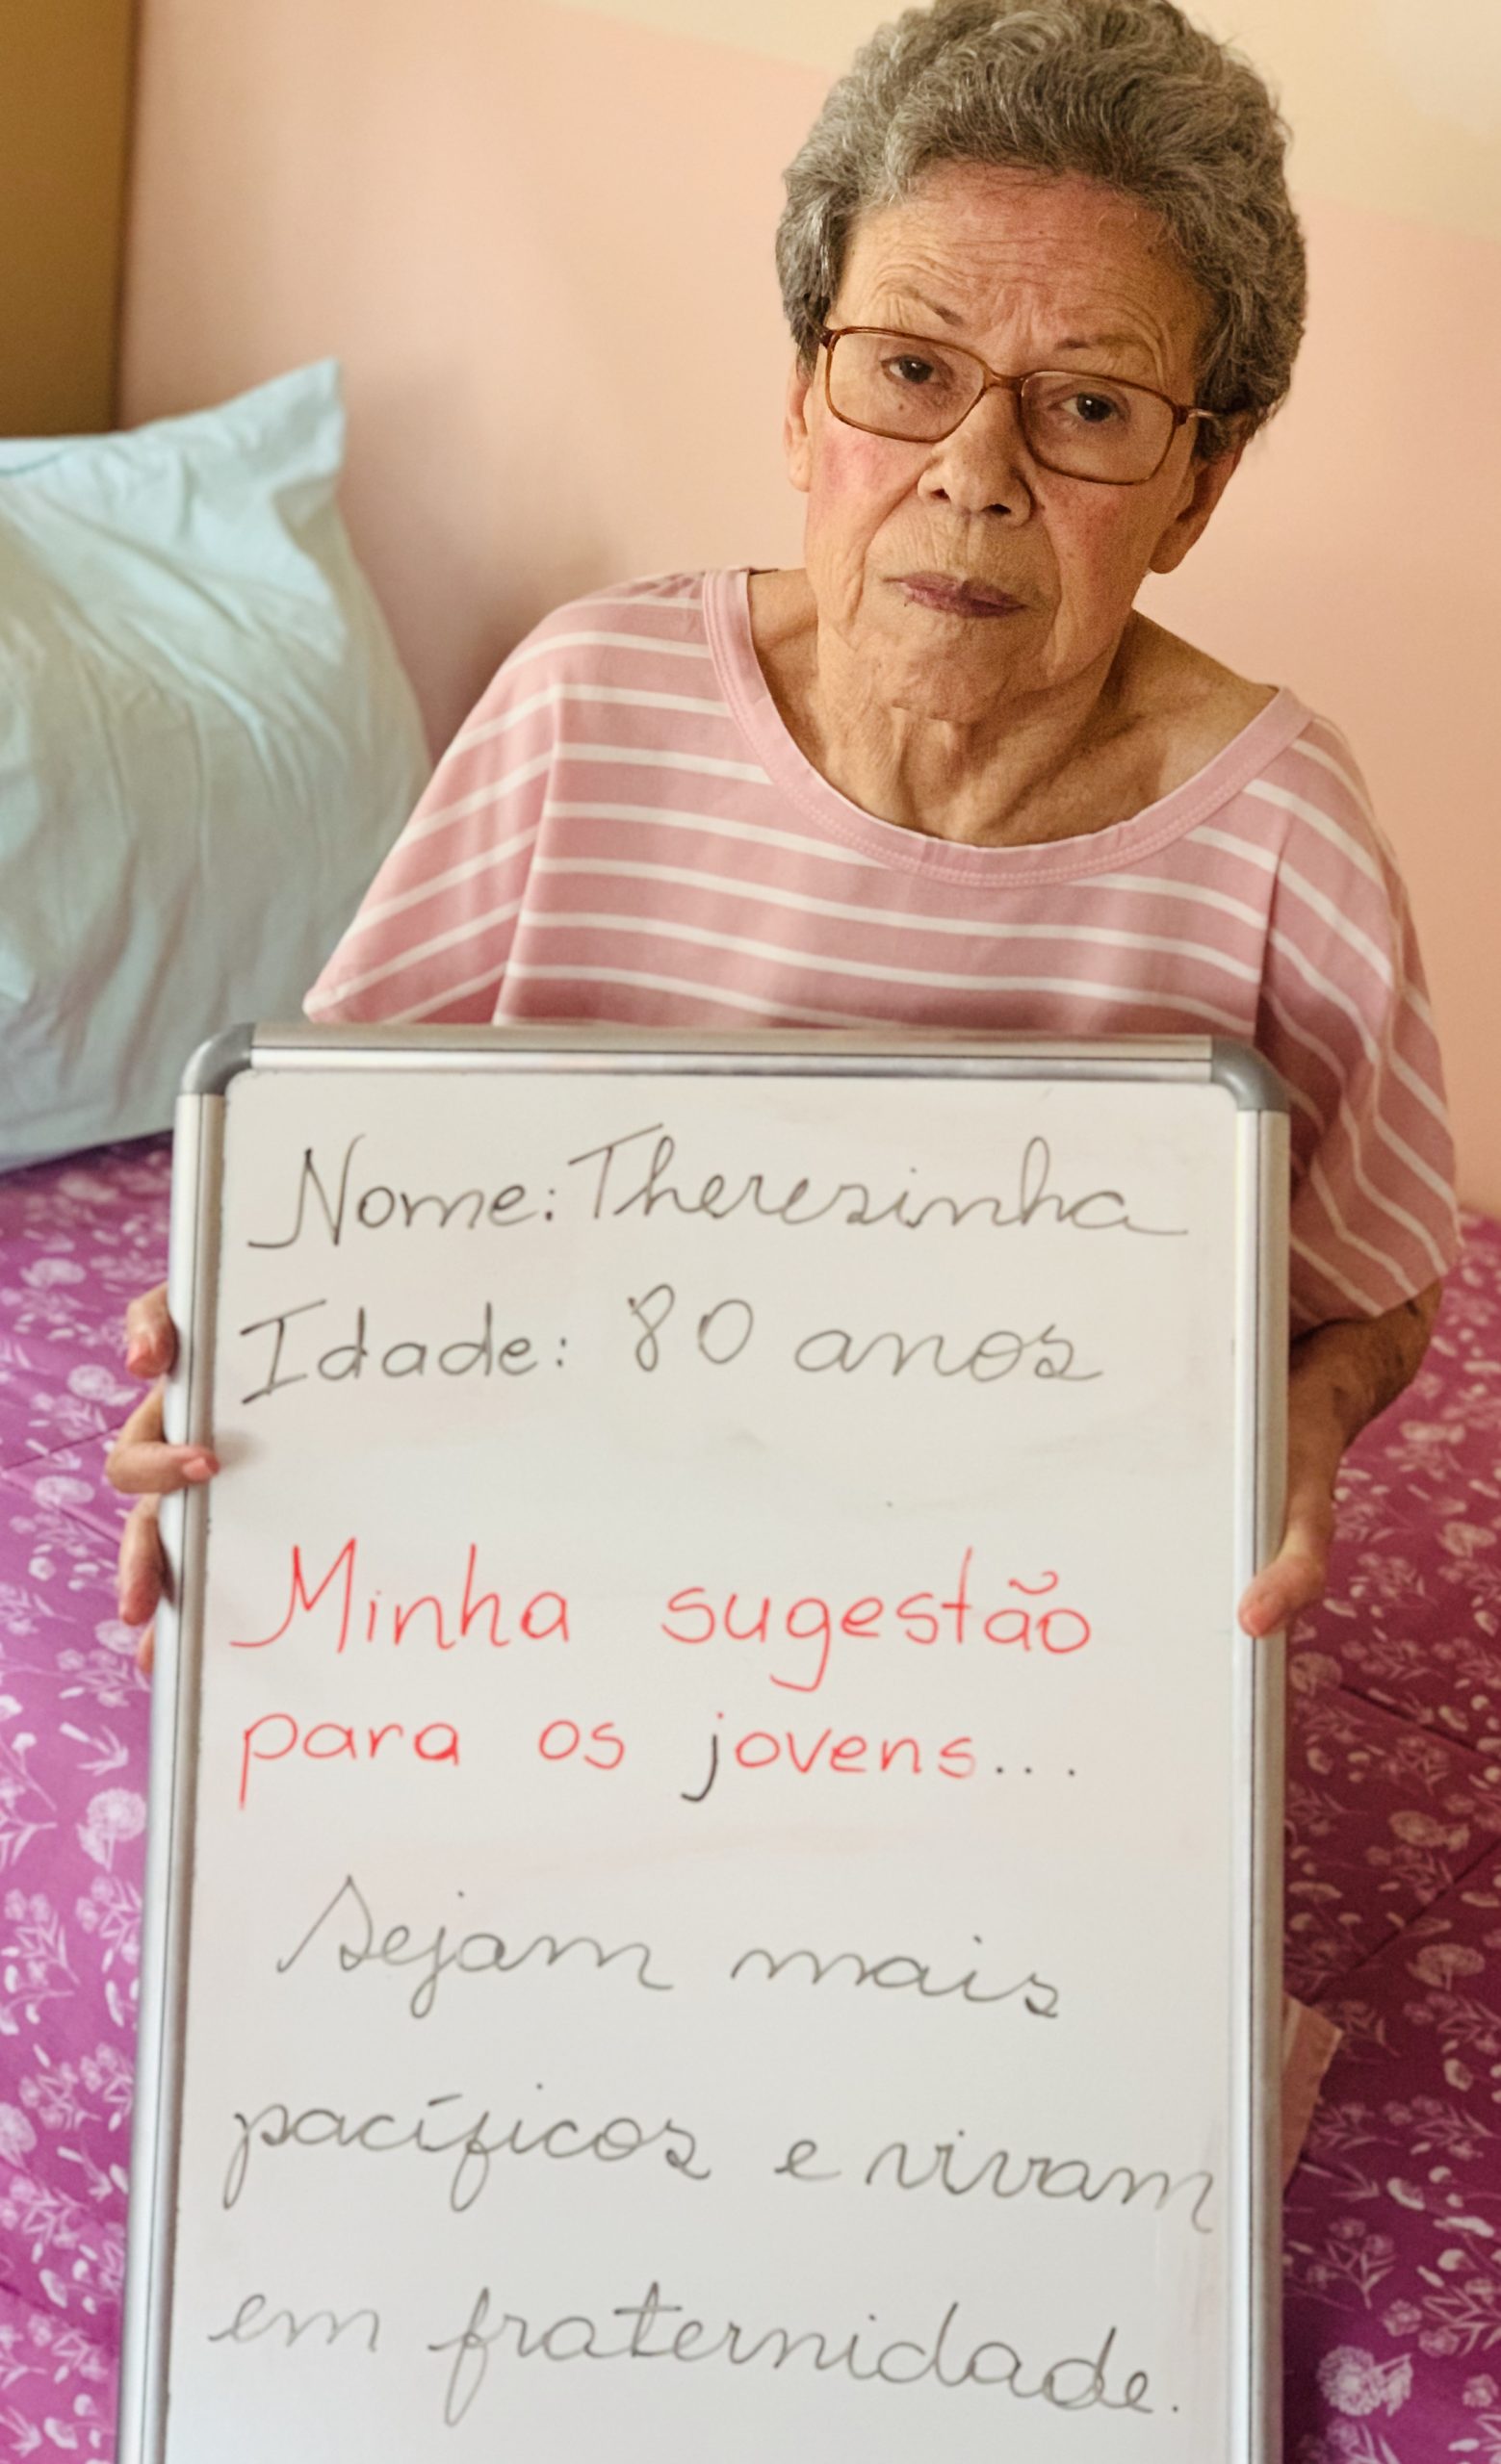 Nome: Theresinha
Idade: 80 anos
Minha sugestão
para os jovens...
Sejam mais
pacíficos e vivam
em fraternidade.